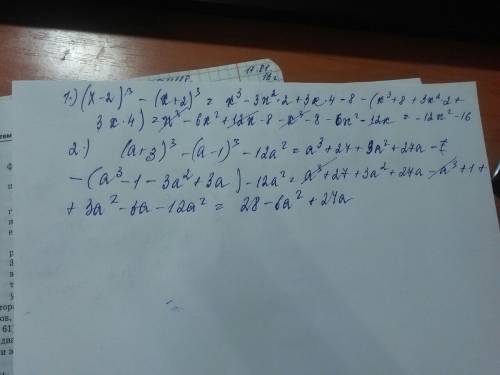 11.01.
1.) (x-2)³ - (x+2)³ = x³ - 3x²·2 + 3x·4 - 8 - (x³ + 8 + 3x²·2 +
3x·4) = x³ - 6x² + 12x - 8 - x³ - 8 - 6x² - 12x = -12x² - 16
2.) (a+3)³ - (a-1)³ - 12a² = a³ + 27 + 9a² + 27a -
- (a³ - 1 - 3a² + 3a) - 12a² = a³ + 27 + 3a² + 27a - a³ + 1 +
+ 3a² - 6a - 12a² = 28 - 6a² + 24a
61)